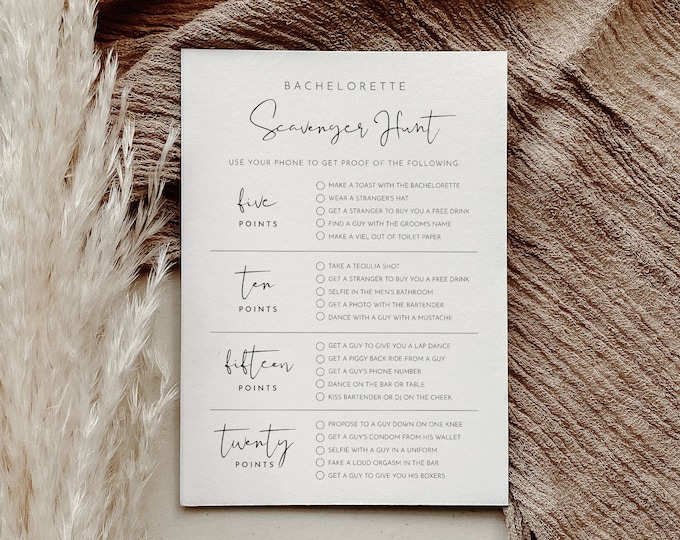 BACHELORETTE
Scavenger Hunt
USE YOUR PHONE TO GET PROOF OF THE FOLLOWING:
five
POINTS
MAKE A TOAST WITH THE BACHELORETTE
WEAR A STRANGER'S HAT
GET A STRANGER TO BUY YOU A FREE DRINK
FIND A GUY WITH THE GROOM'S NAME
MAKE A VIEL OUT OF TOILET PAPER
ten
POINTS
TAKE A TEQUILIA SHOT
GET A STRANGER TO BUY YOU A FREE DRINK
SELFIE IN THE MEN'S BATHROOM
GET A PHOTO WITH THE BARTENDER
DANCE WITH A GUY WITH A MUSTACHE
fifteen
POINTS
GET A GUY TO GIVE YOU A LAP DANCE
GET A PIGGY BACK RIDE FROM A GUY
GET A GUY'S PHONE NUMBER
DANCE ON THE BAR OR TABLE
KISS BARTENDER OR DJ ON THE CHEEK
twenty
POINTS
PROPOSE TO A GUY DOWN ON ONE KNEE
GET A GUY'S CONDOM FROM HIS WALLET
SELFIE WITH A GUY IN A UNIFORM
FAKE A LOUD ORGASM IN THE BAR
GET A GUY TO GIVE YOU HIS BOXERS